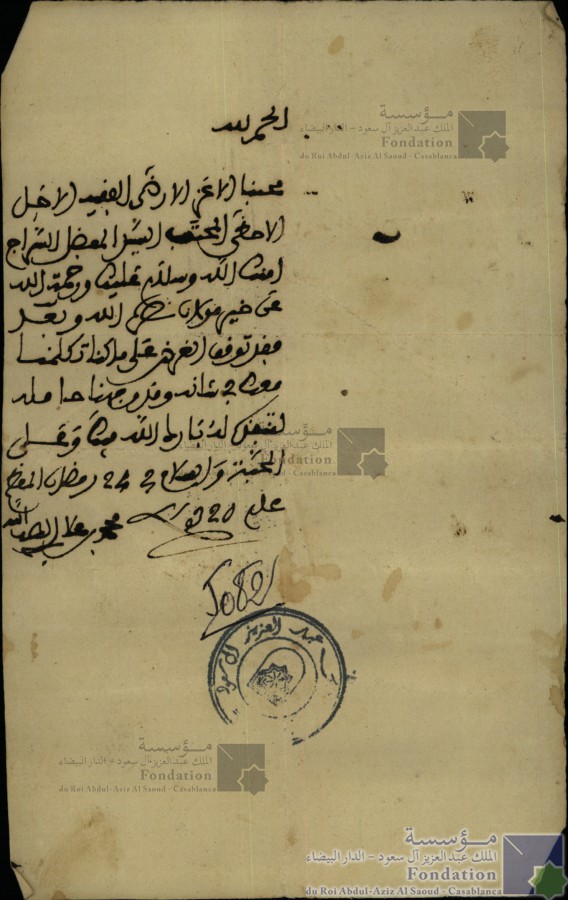 الحمد لله
محبنا الاعز الارضى الفقيه الاجل
الاحظى المحتسب السيد المفضل السراج
امنك الله وسلام عليك ورحمة الله
عن خير مولانا نصره الله وبعد
فقد توقف الغرض على ما كنا تكلمنا
معك في شانه وقد وجهنا حامله
لتنفيذ بارك الله فيك وعلى
المحبة والسلام في 24 رمضان المعظم
عام 20
محمد بن
1082
عبد العزيز آل سعود
مؤسسة
الملك عبد العزيز آل سعود - الدار البيضاء
Fondation
du Roi Abdul-Aziz Al Saoud - Casablanca
مؤسسة
الملك عبد العزيز آل سعود - الدار البيضاء
Fondation
مؤسسة
الملك عبد العزيز آل سعود - الدار البيضاء
Fondation
du Roi Abdul-Aziz Al Saoud - Casablanca
مؤسسة
الملك عبد العزيز آل سعود - الدار البيضاء
Fondation
du Roi Abdul-Aziz Al Saoud - Casablanca